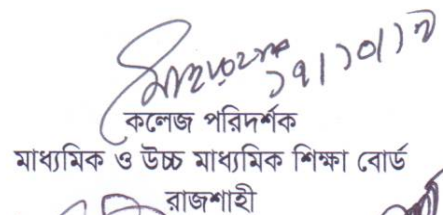 ১৭/১০/১৭
কলেজ পরিদর্শক
মাধ্যমিক ও উচ্চ মাধ্যমিক শিক্ষা বোর্ড
রাজশাহী